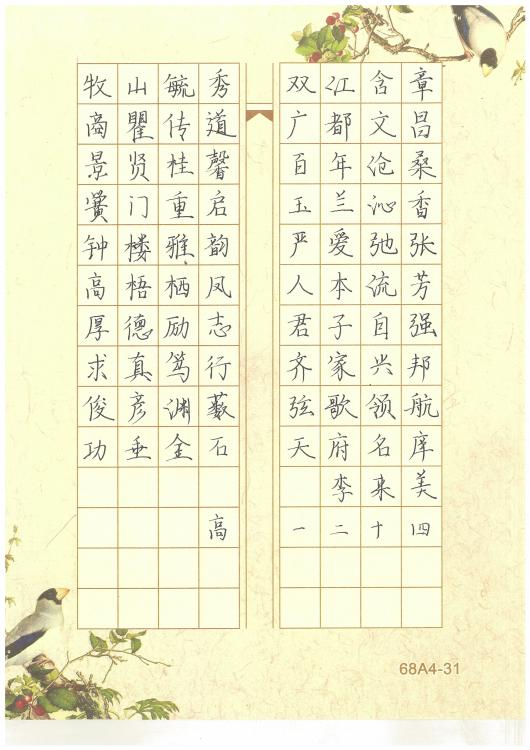 牧山毓秀
商瞿传道
景贤桂馨
黉门重启
钟楼雅韵
高梧栖凤
厚德励志
求真笃行
俊彦渊薮
功垂金石
双江含章
广都文昌
百年沧桑
玉兰沁香
严爱弛张
人本流芳
君子自强
齐家兴邦
弦歌领航
天府名庠
李来美
高一二十四
68A4-31